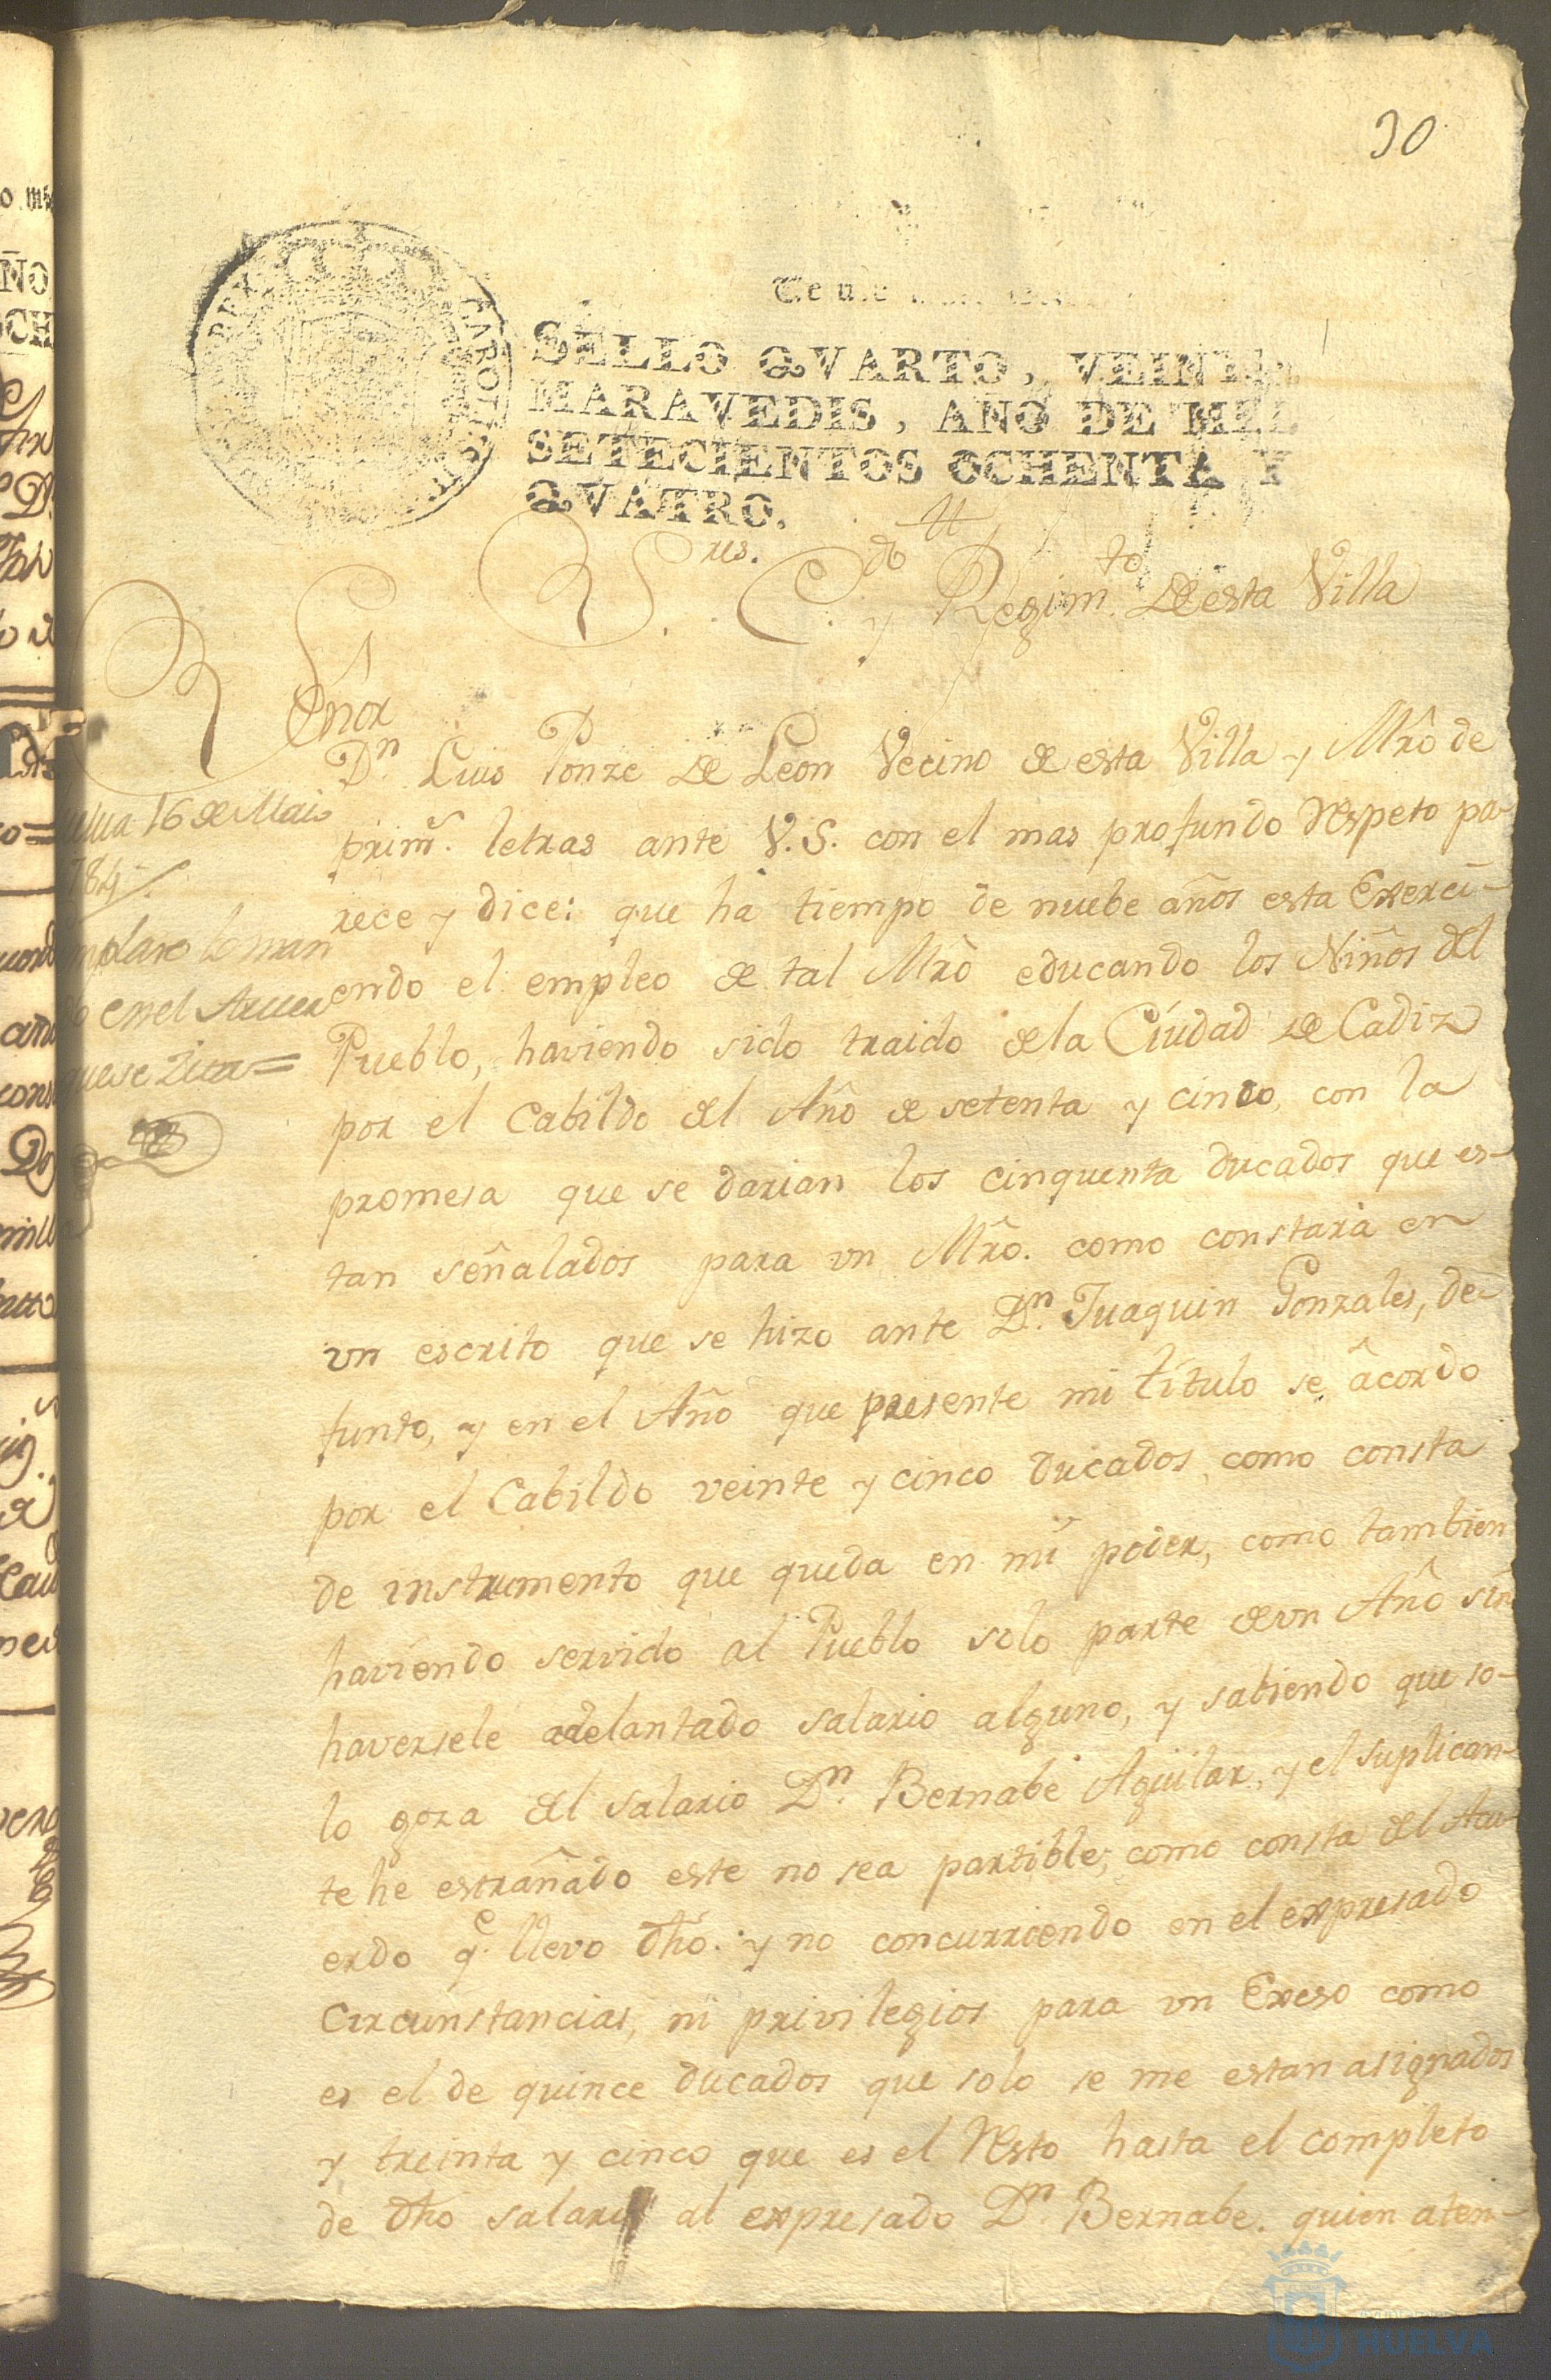 30
SELLO QVARTO, VEINTE
MARAVEDIS, AÑO DE MIL
SETECIENTOS OCHENTA Y
QVATRO.
S.res C.do y Regim.to de esta Villa
Señor
D.n Luis Ponze de Leon Vecino de esta Villa y Mrô de
prim.s letras ante V.S. con el mas profundo Respeto pa-
rece y dice: que há tiempo de nuebe años esta Exerci-
endo el empleo de tal Mrô educando los Niños del
Pueblo, haviendo sido traido de la Ciudad de Cadiz
por el Cabildo del Año de setenta y cinco, con la
promesa que se darian los cinquenta ducados que es-
tan señalados para vn Mrô. como constará en
vn escrito que se hizo ante D.n Juaquin Gonzales, de-
funto, y en el Año que presente mi título se acordo
por el Cabildo veinte y cinco ducados, como consta
de instrumento que queda en mi poder, como tambien
haviendo servido al Pueblo solo parte de vn Año sin
haversele adelantado salario alguno, y sabiendo que so-
lo goza del salario D.n Bernabe Aguilar, y el suplican-
te he estrañado este no sea partible, como consta del Acu-
erdo q.e llevo dhô. y no concurriendo en el expresado
Circunstancias, ni privilegios para vn Exeso como
es el de quince ducados que solo se me estan asignados
y treinta y cinco que es el Resto hasta el completo
de dhô salario al expresado D.n Bernabe. quien aten-
16 de Maio
784
en el Acuer
que se zita=
HUELVA